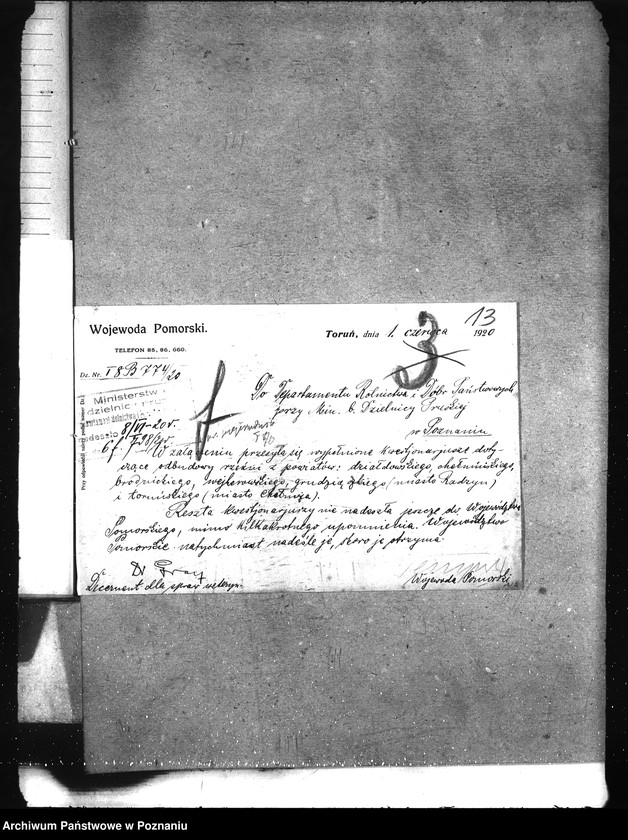 13
Wojewoda Pomorski.
Toruń, dnia 1. czerwca 1920
3
TELEFON 85, 86, 660.
Dz. Nr. I 8B 774/20
Do Departamentu Rolnictwa i Dóbr Państwowych
Ministerstw
dzielnic
przy Min. b. Dzielnicy Pruskiej
w Poznaniu
8/VI-20r.
W załączeniu przesyła się wypełnione kwestjonarjusze doty-
czące odbudowy rzeźni z powiatów: działdowskiego, chełmińskiego,
brodnickiego, wejherowskiego, grudziądzkiego (miasto Radzyn)
i toruńskiego (miasto Chełmża).
Reszta kwestjonarjuszy nie nadeszła jeszcze do Województwa
Pomorskiego, mimo kilkakrotnego upomnienia. Województwo
Pomorskie natychmiast nadeśle je, skoro je otrzyma.
Dr
Decernent dla spraw weteryn.
Wojewoda Pomorski
Archiwum Państwowe w Poznaniu